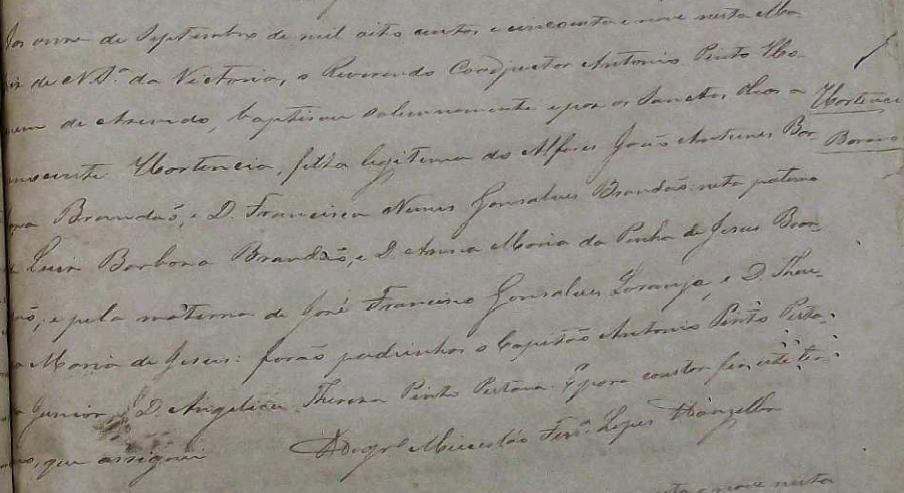 Aos onze de Septembro de mil oito centos e cincoenta e nove nesta Ma-
triz de N. Sª. da Victoria, o Reverendo Coadjuctor Antonio Pinto Ho-
mem de Azevedo, baptisou solemnemente e poz os Sanctos Oleos a
Hortencia
innocente Hortencia, filha legitima do Alferes João Antunes Bar-
Barbosa
bosa Brandão, e D. Francisca Nunes Gonsalves Brandão: neta paterna
de Luiz Barbosa Brandão, e D. Anna Maria da Penha de Jesus Bran-
dão, e pela materna de José Francisco Gonsalves Laranja, e D. There-
sa Maria de Jesus: forão padrinhos o Capitão Antonio Pinto Pesta-
na Junior, e D. Angelica Theresa Pinto Pestana. E para constar fiz este ter-
mo, que assignei Miecesláo Ferrª. Lopes Wanzeller
e nove nesta